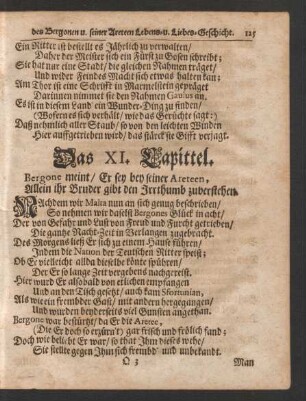 des Bergonen u. seiner Areteen Lebens-v. Liebes-Geschicht. 125
Ein Ritter ist bestellt es Jährlich zu verwalten/
Daher der Meister sich ein Fürst zu Gosen schreibt;
Sie hat nur eine Stadt/ die gleichen Nahmen träget/
Und wider Feindes Macht sich etwas halten kan;
Am Thor ist eine Schrifft in Marmelstein gepräget
Darinnen nimmet sie den Nahmen Gaulus an.
Es ist in diesem Land ein Wunder-Ding zu finden/
(Wofern es sich verhält/ wie das Gerüchte sagt:)
Daß nehmlich aller Staub/ so von den leichten Winden
Hier auffgetrieben wird/ das stärckste Gifft verjagt.
Das XI. Capittel.
Bergone meint/ Er sey bey seiner Areteen,
Allein ihr Bruder gibt den Irrthumb zuverstehen.
Nachdem wir Malta nun an sich genug beschrieben/
So nehmen wir daselst Bergones Glück in acht/
Der von Gefahr und Lust von Freud und Furcht getrieben/
Die gantze Nacht-Zeit in Verlangen zugebracht.
Des Morgens ließ Er sich zu einem Hause führen/
Indem die Nation der Teutschen Ritter speist;
Ob Er vielleicht allda dieselbe dörfte spühren/
Der Er so lange Zeit vergebens nachgereist.
Hier wurd Er alsobald von etlichen empfangen
Und an den Tisch gesetzt/ auch kam Sfortunian,
Als wie ein frembder Gast/ mit andern hergegangen/
Und wurden beyderseits viel Gunsten angethan.
Bergone war bestürtzt/ da Er die Aretee,
(Die Er doch so erzürn't) gar frisch und frölich fand;
Doch wie beliebt Er war/ so that Ihm dieses wehe/
Sie stellte gegen Ihm sich frembd und unbekandt.
Q 3 Man